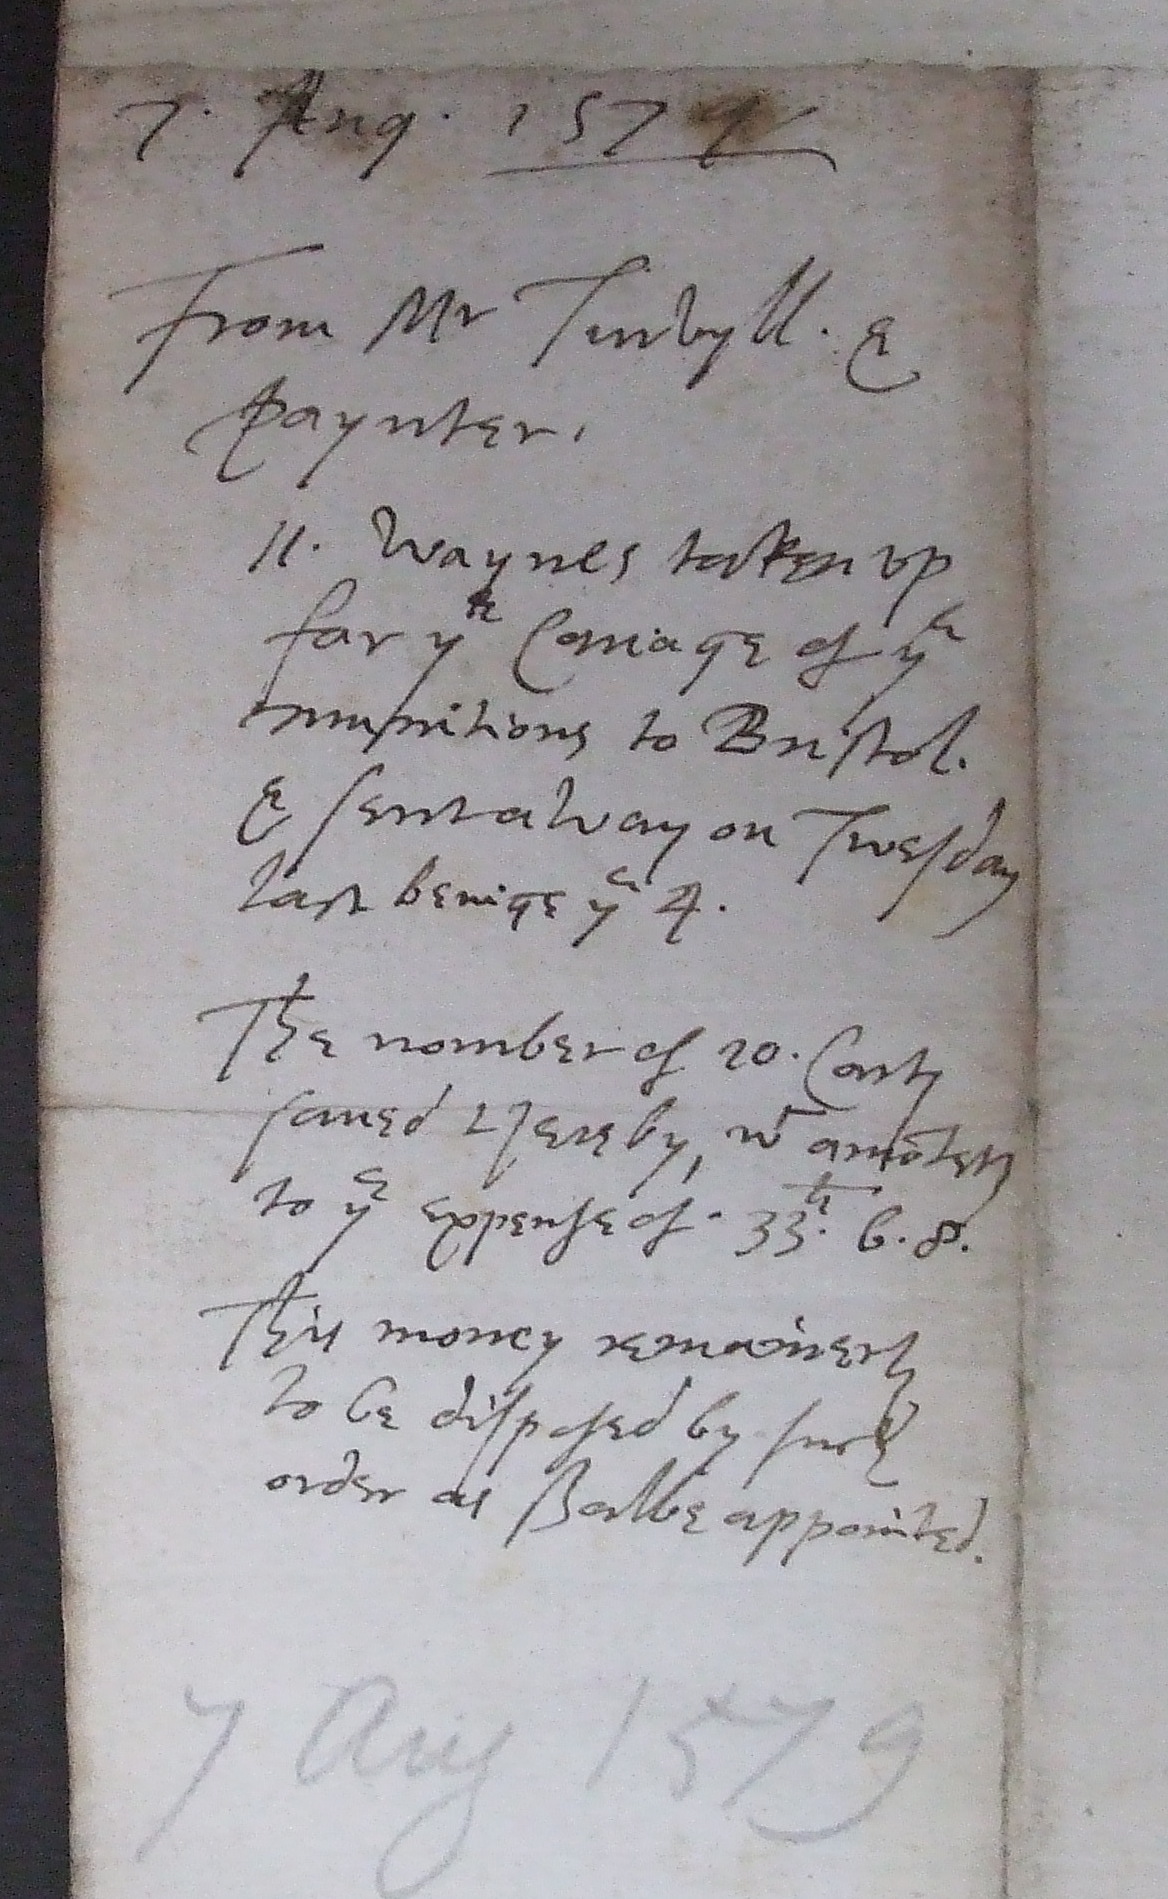 7. Aug. 1579
From Mr Turbyll. &
Paynter.
11. Waynes taken vp
for yᵉ Cariage of yᵉ
munitions to Bristol.
& sent away on Twesday
last beinge yᵉ 4.
The nomber of 20. Carts
saued thereby, wᶜʰ amōteth
to yᵉ expense of. 33ˡⁱ. 6. 8.
This money remaineth
to be disposed by such
order as shalbe appointed.
7 Aug 1579